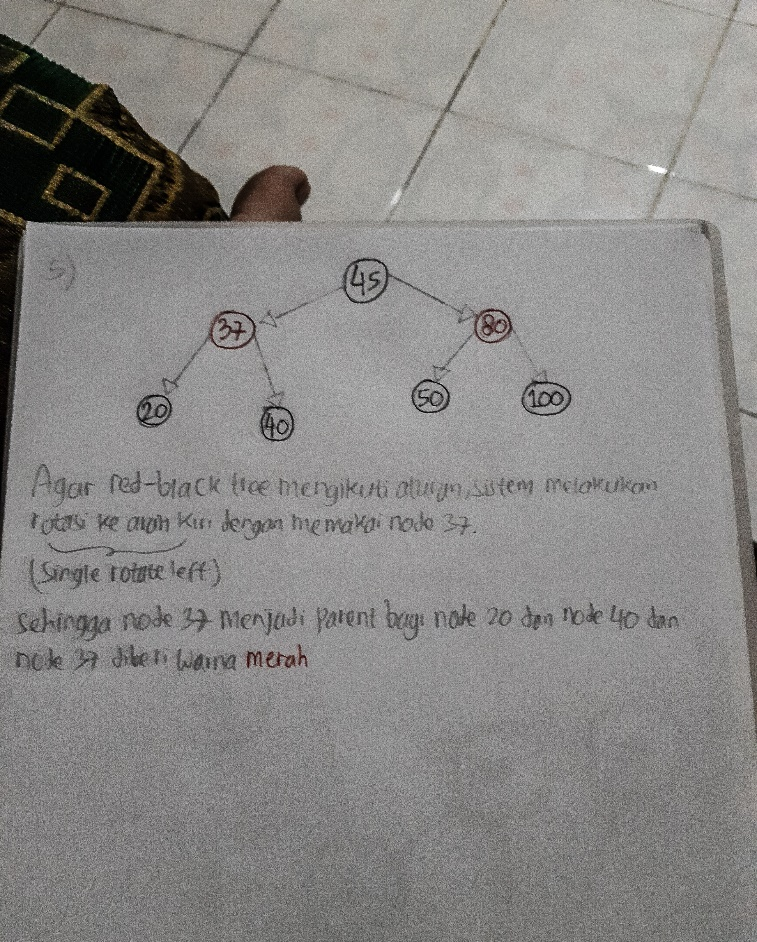 5)
45
37 80
20 40 50 100
Agar red-black tree mengikuti aturan, sistem melakukan
rotasi ke arah kiri dengan memakai node 37.
(Single rotate left)
sehingga node 37 menjadi parent bagi node 20 dan node 40 dan
node 37 diberi warna merah